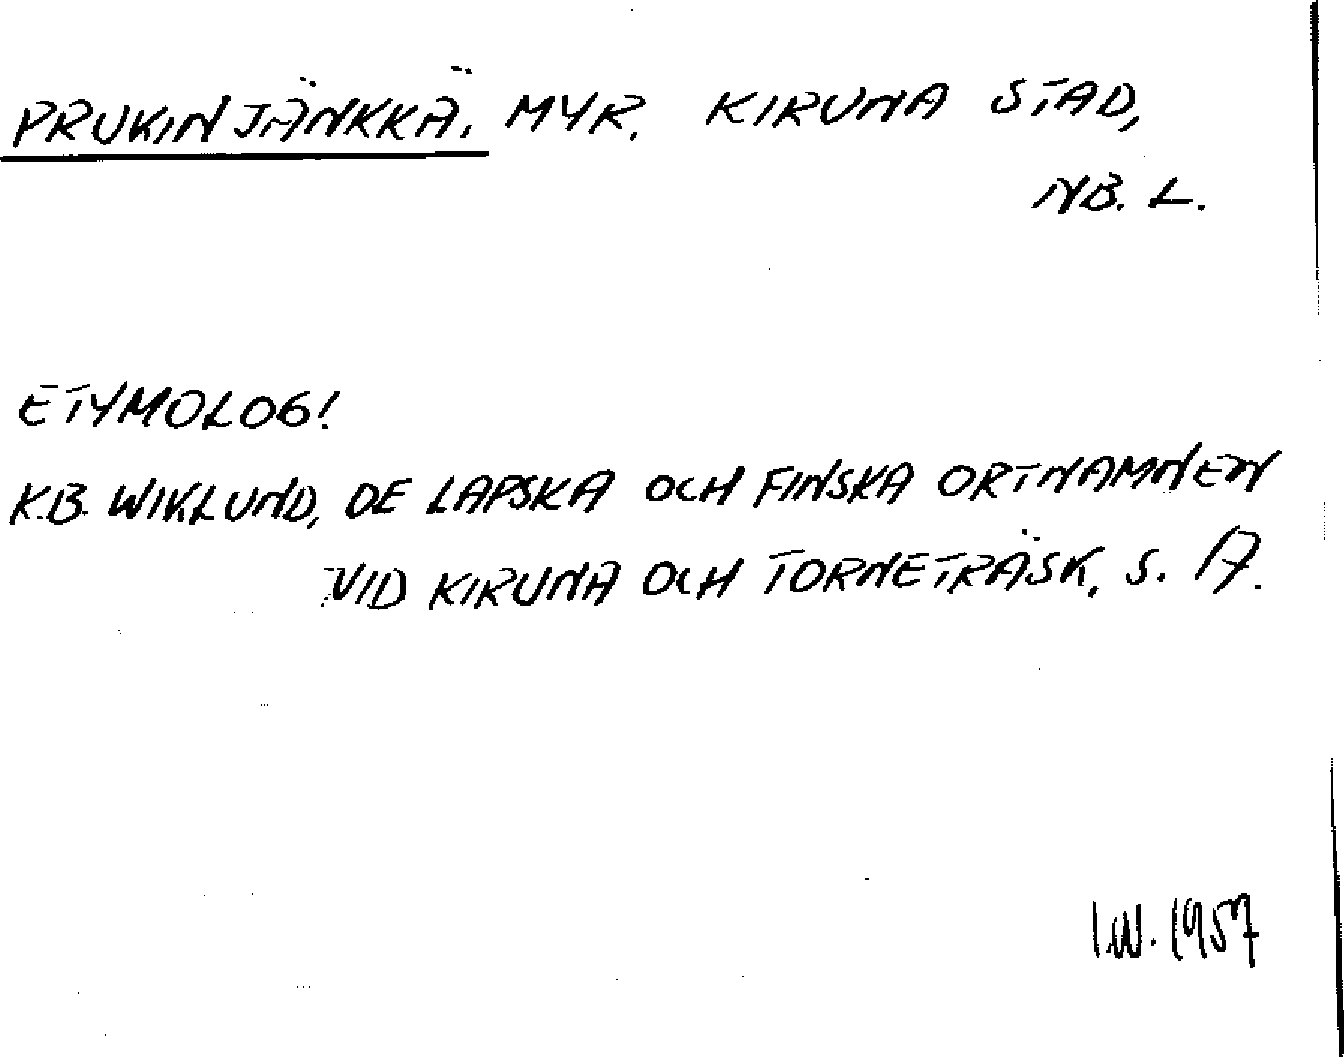 PRUKINJÄNKKÄ. MYR. KIRUNA STAD,
NB. L.
ETYMOLOGI
K.B. WIKLUND, DE LAPSKA OCH FINSKA ORTNAMNEN
VID KIRUNA OCH TORNETRÄSK, S. 17.
I.W. 1957